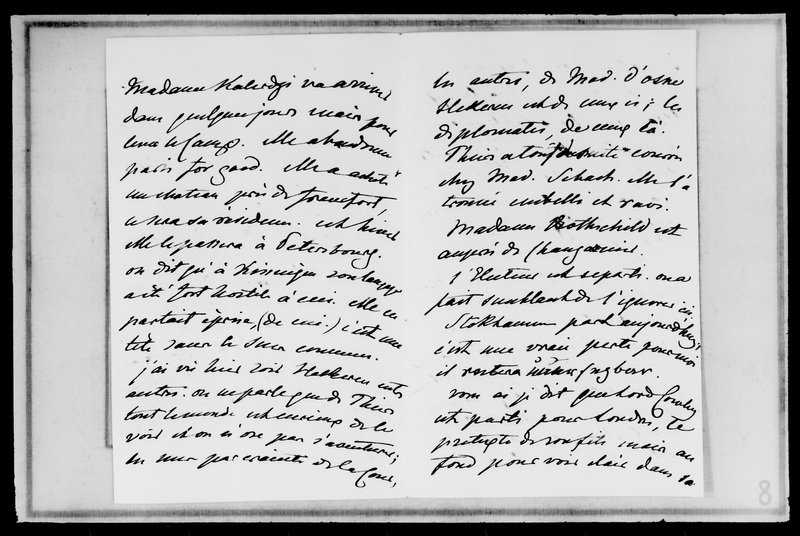 Madame Kalerdgi va arriver
dans quelques jours mais pour
lever le camp. Elle abandonne
paris for good. Elle a acheté
un chateau près de francfort,
ce sera sa residence. cet hiver
elle le passera à Petersbourg.
on dit qu'à Kissingen son langage
a été fort hostile à ceci. Elle en
partait éprise, (de ceci.) c'est une
tête sans le sens commun.
j'ai vu hier soir Heckeren entre
autres. on ne parle que de Thiers
tout le monde est curieux de le
voir et on n'ose pas s'aventurer;
les uns par crainte de la Cour,
les autres, de Mad. d'osne
Heckeren est de ceux ci; les
diplomates, de ceux là.
Thiers a tout de suite couru
chez Mad. Schach. Elle l'a
trouvé embelli et ravi.
Madame Rothschild est
auprès de Changarnier.
l'Electeur est reparti. on a
fait semblant de l'ignorer ici.
Stokhausen part aujourd'hui,
c'est une vraie perte pour moi
il restera
vous ai je dit que Lord Cowley
est parti pour Londres, le
pretexte de son fils mais au
fond pour voir clair dans sa
8